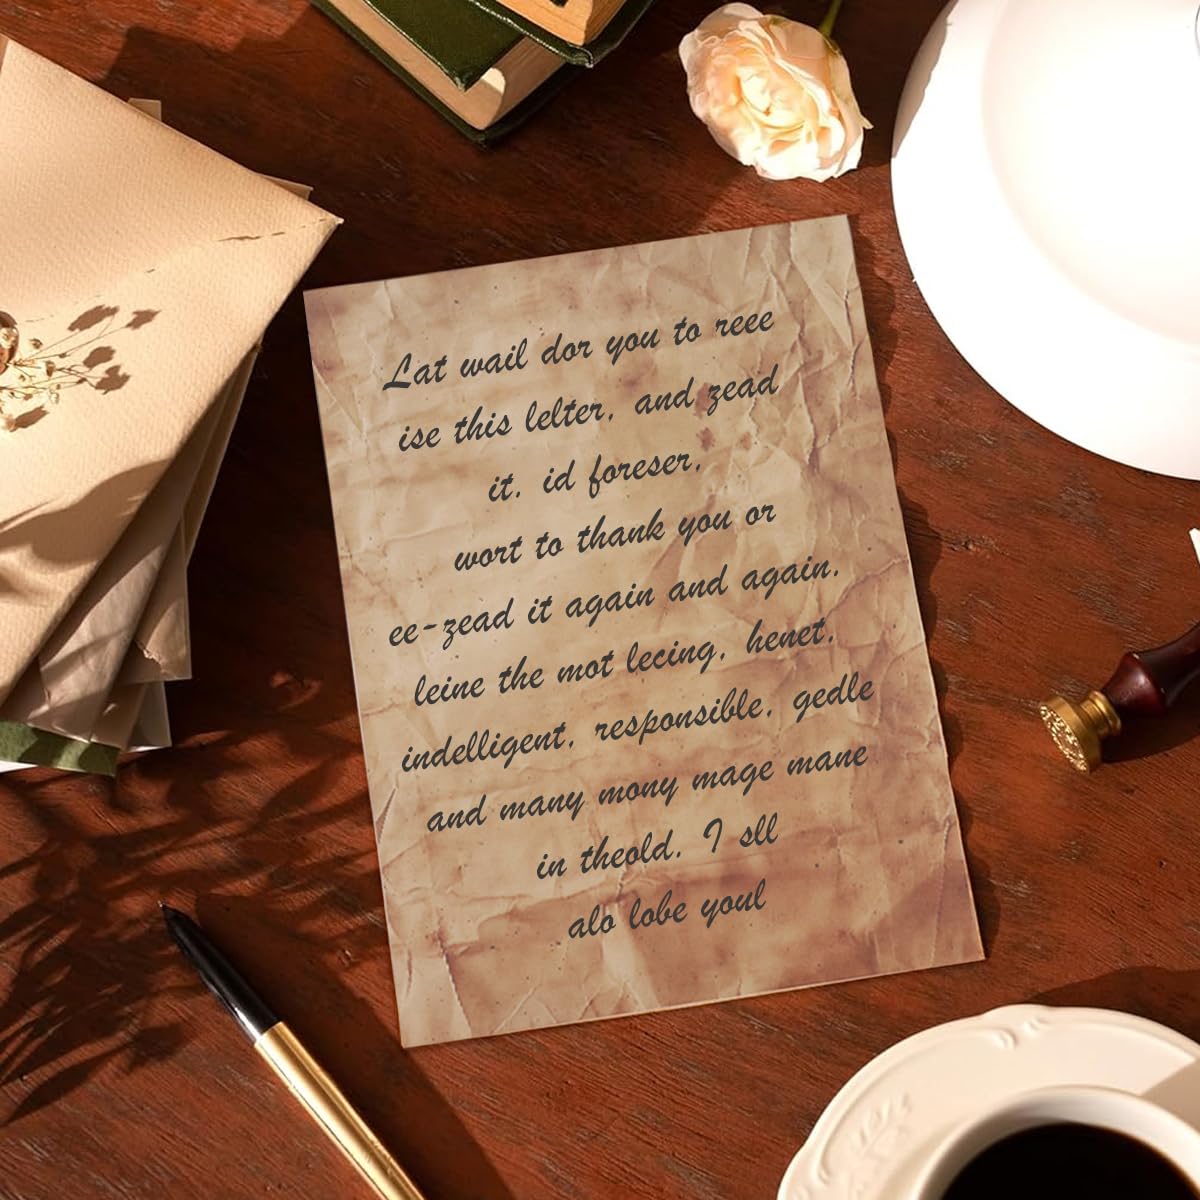 Lat wail dor you to reee
ise this lelter, and zead
it. id foreser,
wort to thank you or
ee-zead it again and again.
leine the mot lecing, henet,
indelligent, responsible, gedle
and many mony mage mane
in theold. I sll
alo lobe youl